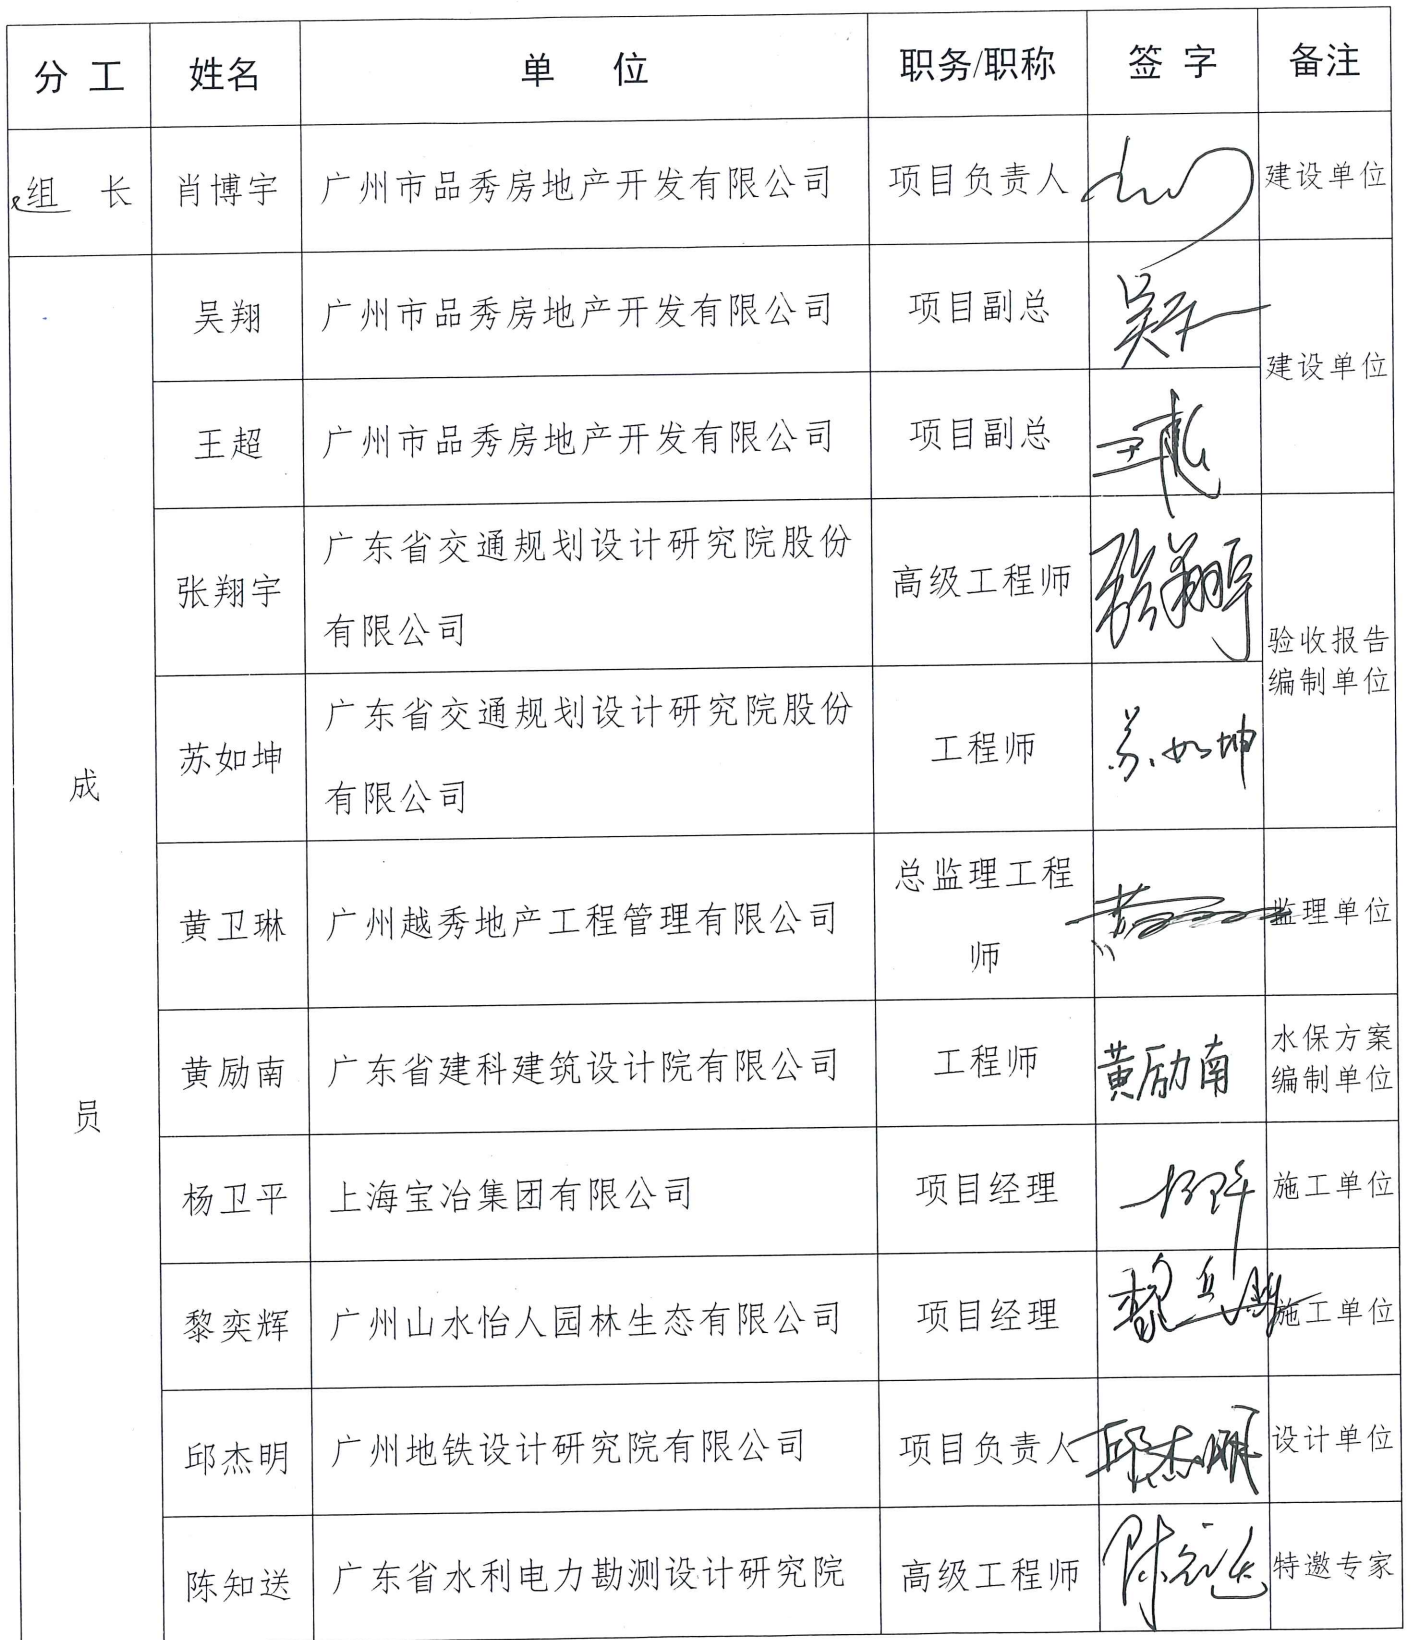 分 工 姓名 单 位 职务/职称 签 字 备注
组 长 肖博宇 广州市品秀房地产开发有限公司 项目负责人 建设单位
成 员
吴翔 广州市品秀房地产开发有限公司 项目副总 吴翔
建设单位
王超 广州市品秀房地产开发有限公司 项目副总 王超
张翔宇 广东省交通规划设计研究院股份
有限公司 高级工程师 张翔宇
验收报告
编制单位
苏如坤 广东省交通规划设计研究院股份
有限公司 工程师 苏如坤
黄卫琳 广州越秀地产工程管理有限公司 总监理工程
师 监理单位
黄励南 广东省建科建筑设计院有限公司 工程师 黄励南 水保方案
编制单位
杨卫平 上海宝冶集团有限公司 项目经理 杨卫平 施工单位
黎奕辉 广州山水怡人园林生态有限公司 项目经理 施工单位
邱杰明 广州地铁设计研究院有限公司 项目负责人 邱杰明 设计单位
陈知送 广东省水利电力勘测设计研究院 高级工程师 陈知送 特邀专家